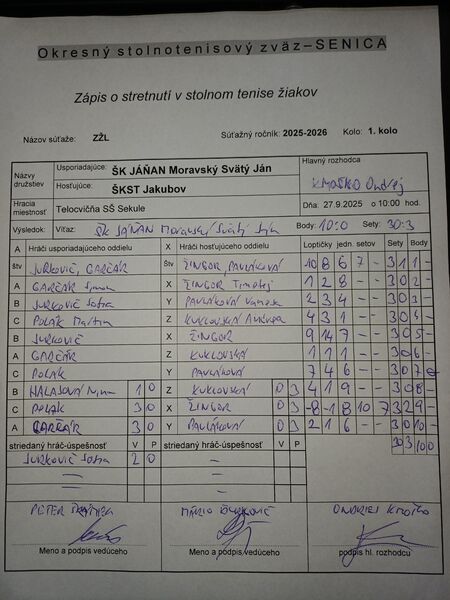 Okresný stolnotenisový zväz–SENICA
Zápis o stretnutí v stolnom tenise žiakov
Názov súťaže: ZŽL Súťažný ročník: 2025-2026 Kolo: 1. kolo
Názvy družstiev Usporiadajúce: ŠK JÁŇAN Moravský Svätý Ján Hlavný rozhodca
Hosťujúce: ŠKST Jakubov KMOŠKO Ondrej
Hracia miestnosť Telocvičňa SŠ Sekule Dňa: 27.9.2025 o 10:00 hod.
Výsledok: Víťaz: ŠK JÁŇAN Moravský Svätý Ján Body: 10:0 Sety: 30:3
A Hráči usporiadajúceho oddielu X Hráči hosťujúceho oddielu Loptičky jedn. setov Sety Body
štv JURKOVIČ, GARČÁR Štv ŽINGOR PAVLÁKOVÁ 10 8 6 7 – 3 1 1 –
A GARČÁR X ŽINGOR Timotej 1 2 8 – – 3 0 2 –
B JURKOVIČ Sofia Y PAVLÁKOVÁ Vanesa 2 3 4 – – 3 0 3 –
C POLÁK Martin Z KUKLOVSKÁ 4 3 1 – – 3 0 4 –
B JURKOVIČ X ŽINGOR 9 14 7 – – 3 0 5 –
A GARČÁR Z KUKLOVSKÁ 1 1 1 – – 3 0 6 –
C POLÁK Y PAVLÁKOVÁ 7 4 6 – – 3 0 7
B HALASOVÁ Nina 1 0 Z KUKLOVSKÁ 0 3 4 1 9 – – 3 0 8 –
C POLÁK 3 0 X ŽINGOR 0 3 -8 -1 8 10 7 3 2 9 –
A GARČÁR 3 0 Y PAVLÁKOVÁ 0 3 2 1 6 – – 3 0 10 –
striedaný hráč-úspešnosť V P striedaný hráč-úspešnosť V P 30 3 10 0
JURKOVIČ Sofia 2 0 –
– –
– –
PETER MÁRIO ONDREJ KMOŠKO
Meno a podpis vedúceho Meno a podpis vedúceho podpis hl. rozhodcu